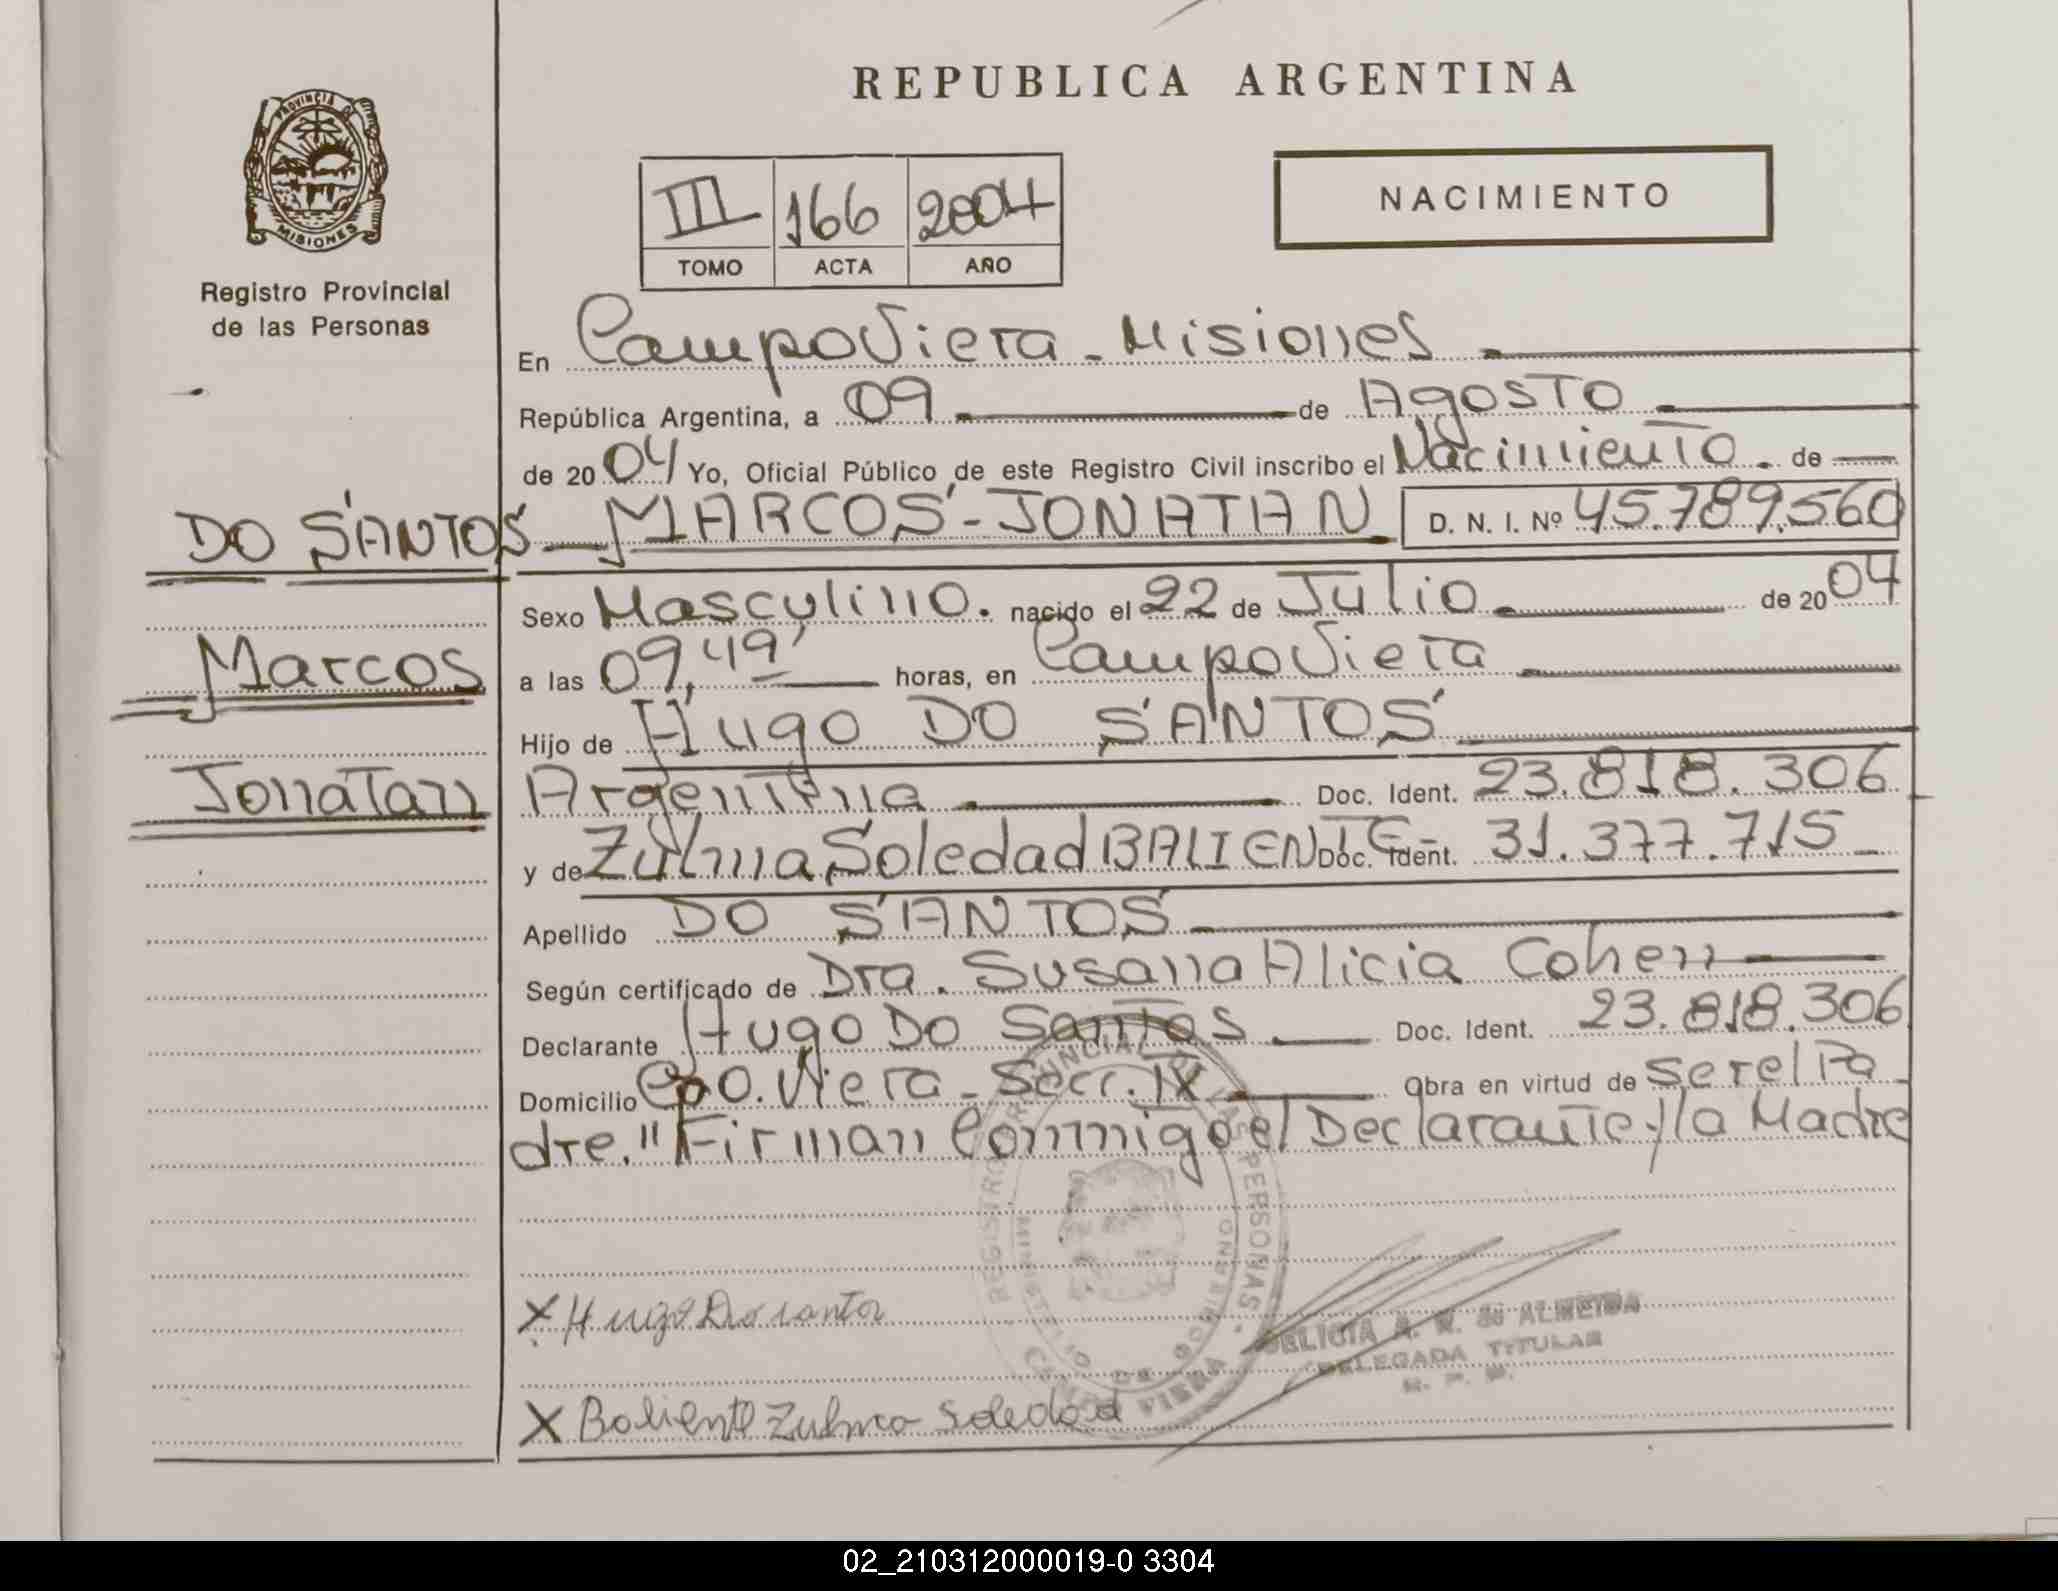 REPUBLICA ARGENTINA
PROVINCIA DE
MISIONES
Registro Provincial
de las Personas
III 166 2004
TOMO ACTA AÑO
NACIMIENTO
En Campo Viera - Misiones
República Argentina, a 09 de Agosto
de 2004 Yo, Oficial Público de este Registro Civil inscribo el Nacimiento. de
DO SANTOS MARCOS - JONATAN D. N. I. Nº 45.789.560
Sexo Masculino. nacido el 22 de Julio de 2004
Marcos
a las 09,49' horas, en Campo Viera
Hijo de Hugo DO SANTOS
Jonatan
Argentina Doc. Ident. 23.818.306
y de Zulma Soledad BALIENTE - Doc. Ident. 31.377.715
Apellido DO SANTOS
Según certificado de Dra. Susana Alicia Cohen
Declarante Hugo Do Santos Doc. Ident. 23.818.306
Domicilio Cpo. Viera - Secc. IX Obra en virtud de ser el Pa
dre." Firman Conmigo el Declarante y la Madre
REGISTRO PROVINCIAL DE LAS PERSONAS
MINISTERIO DE GOBIERNO
CAMPO VIERA
X Hugo Dos santos
DELICIA A. R. de ALMEIDA
DELEGADA TITULAR
R. P. P.
X Baliente Zulma Soledad
02_210312000019-0 3304